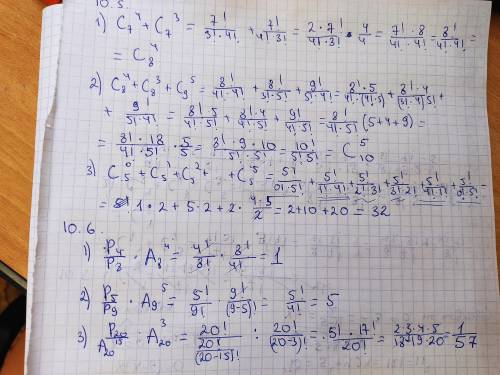 10.5.
1) C₇⁴ + C₇³ = 7!/(3!·4!) + 7!/(4!·3!) = (2·7!)/(4!·3!) · 4/4 = (7!·8)/(4!·4!) = 8!/(4!·4!) =
= C₈⁴
2) C₈⁴ + C₈³ + C₉⁵ = 8!/(4!·4!) + 8!/(3!·5!) + 9!/(5!·4!) = (8!·5)/(4!·(4!·5)) + (8!·4)/((3!·4)·5!) +
+ 9!/(5!·4!) = (8!·5)/(4!·5!) + (8!·4)/(4!·5!) + 9!/(4!·5!) = 8!/(4!·5!) (5+4+9) =
= (8!·18)/(4!·5!) · 5/5 = (8!·9·10)/(5!·5!) = 10!/(5!·5!) = C₁₀⁵
3) C₅⁰ + C₅¹ + C₅² + + C₅⁵ = 5!/(0!·5!) + 5!/(1!·4!) + 5!/(2!·3!) + 5!/(3!·2!) + 5!/(4!·1!) + 5!/(0!·5!) =
= 1·2 + 5·2 + 2 · (4·5)/2 = 2+10+20 = 32
10.6.
1) P₄/P₈ · A₈⁴ = 4!/8! · 8!/4! = 1
2) P₅/P₉ · A₉⁵ = 5!/9! · 9!/(9-5)! = 5!/4! = 5
3) P₂₀/A₂₀¹⁵ : A₂₀³ = 20!/(20!/(20-15)!) : 20!/(20-3)! = (5!·17!)/20! = (2·3·4·5)/(18·19·20) = 1/57